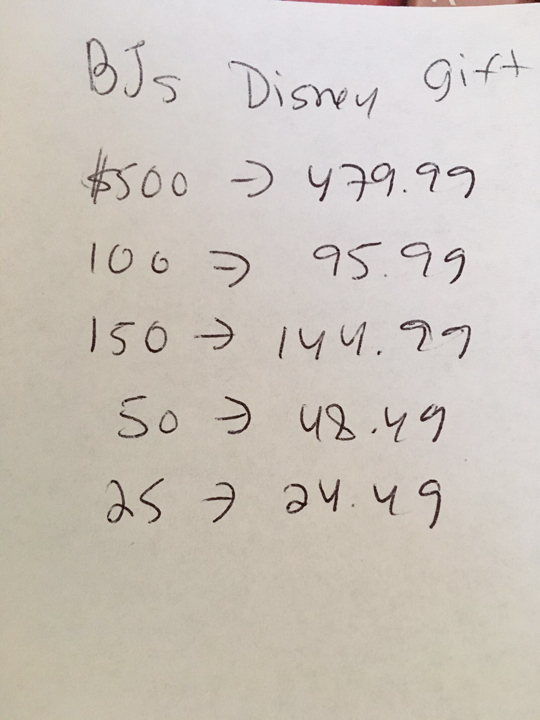 BJs Disney Gift
$500 → 479.99
100 → 95.99
150 → 144.99
50 → 48.49
25 → 24.49